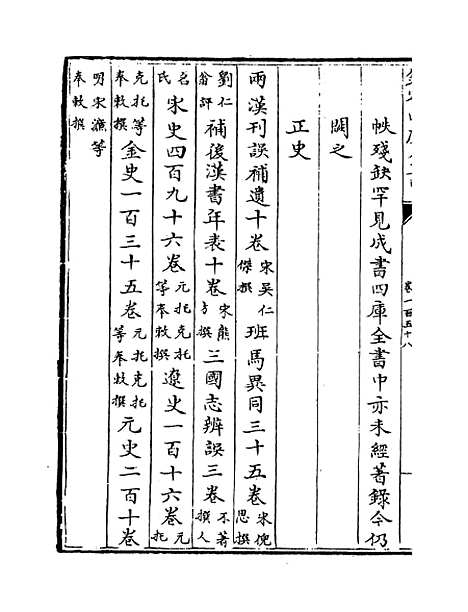 卷一百五十八
帙殘缺罕見成書四庫全書中亦未經著錄今仍
闕之
正史
兩漢刊誤補遺十卷宋吳仁傑撰班馬異同三十五卷宋倪思撰
劉仁翁評補後漢書年表十卷宋熊方撰三國志辨誤三卷不著撰人
名氏宋史四百九十六卷元托克托等奉敕撰遼史一百十六卷元托
克托等奉敕撰金史一百三十五卷元托克托等奉敕撰元史二百十卷
明宋濂等奉敕撰